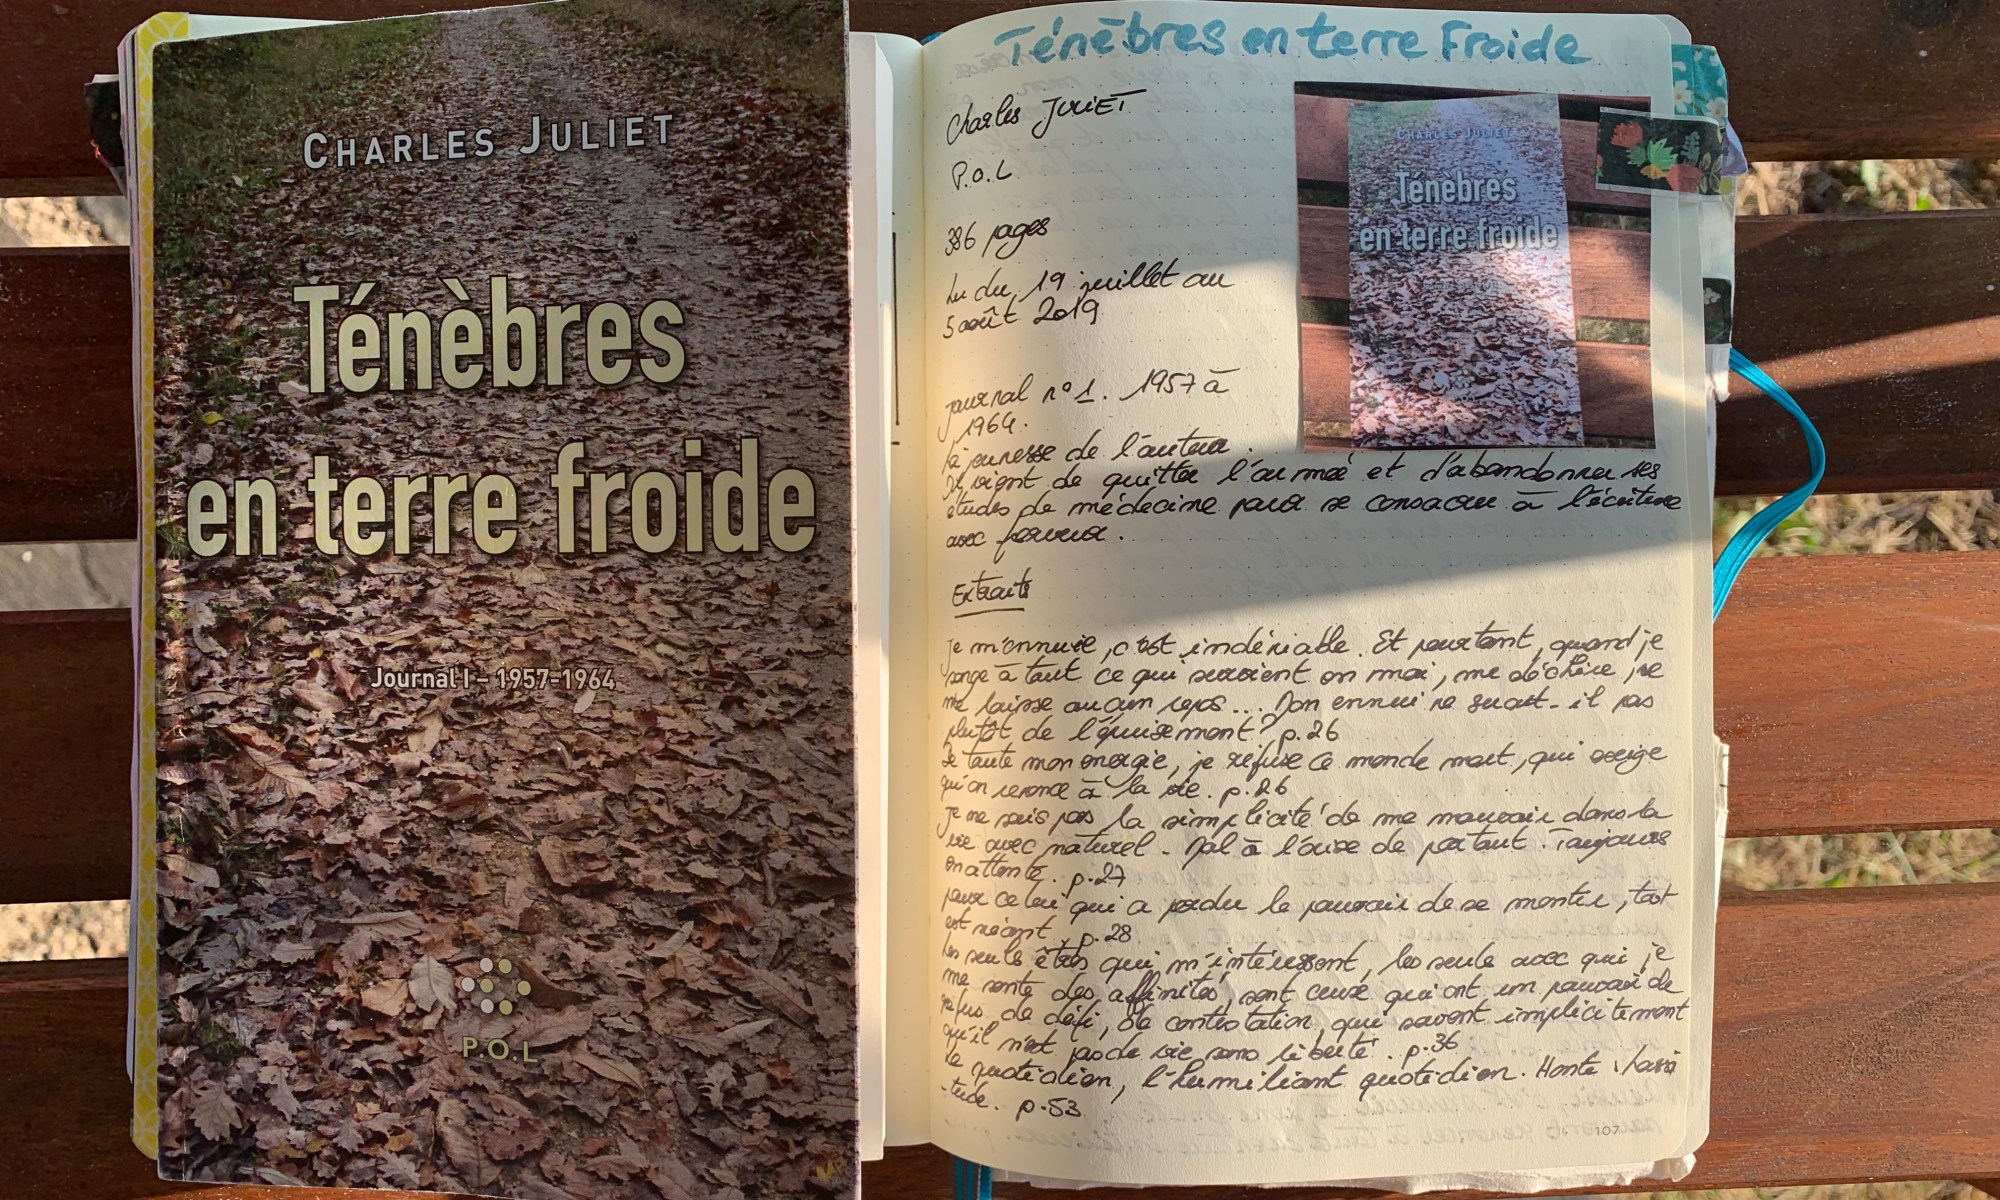 CHARLES JULIET
Ténèbres
en terre froide
Journal I - 1957-1964
P.O.L
Ténèbres en terre Froide
Charles JULIET
P.O.L
386 pages
Lu du 19 juillet au
5 août 2019
journal n° 1. 1957 à
1964.
la jeunesse de l'auteur.
Il vient de quitter l'armée et d'abandonner ses
études de médecine pour se consacrer à l'écriture
avec ferveur.
Extraits
Je m'ennuie, c'est indéniable. Et pourtant, quand je
songe à tout ce qui survient en moi, me déchire, ne
me laisse aucun repos... Mon ennui ne serait-il pas
plutôt de l'épuisement? p.26
De toute mon énergie, je refuse ce monde mort, qui exige
qu'on renonce à la vie. p.26
Je ne sais pas la simplicité de me mouvoir dans la
vie avec naturel. Mal à l'aise de partout. Toujours
en attente. p.27
pour celui qui a perdu le pouvoir de se mentir, tout
est néant. p.28
Les seuls êtres qui m'intéressent, les seuls avec qui je
me sente des affinités, sont ceux qui ont un pouvoir de
refus, de défi, de contestation, qui savent implicitement
qu'il n'est pas de vie sans liberté. p.36
Le quotidien, l'humiliant quotidien. Honte. Lassi
-tude. p.53
107
CHARLES JULIET
Ténèbres
en terre froide